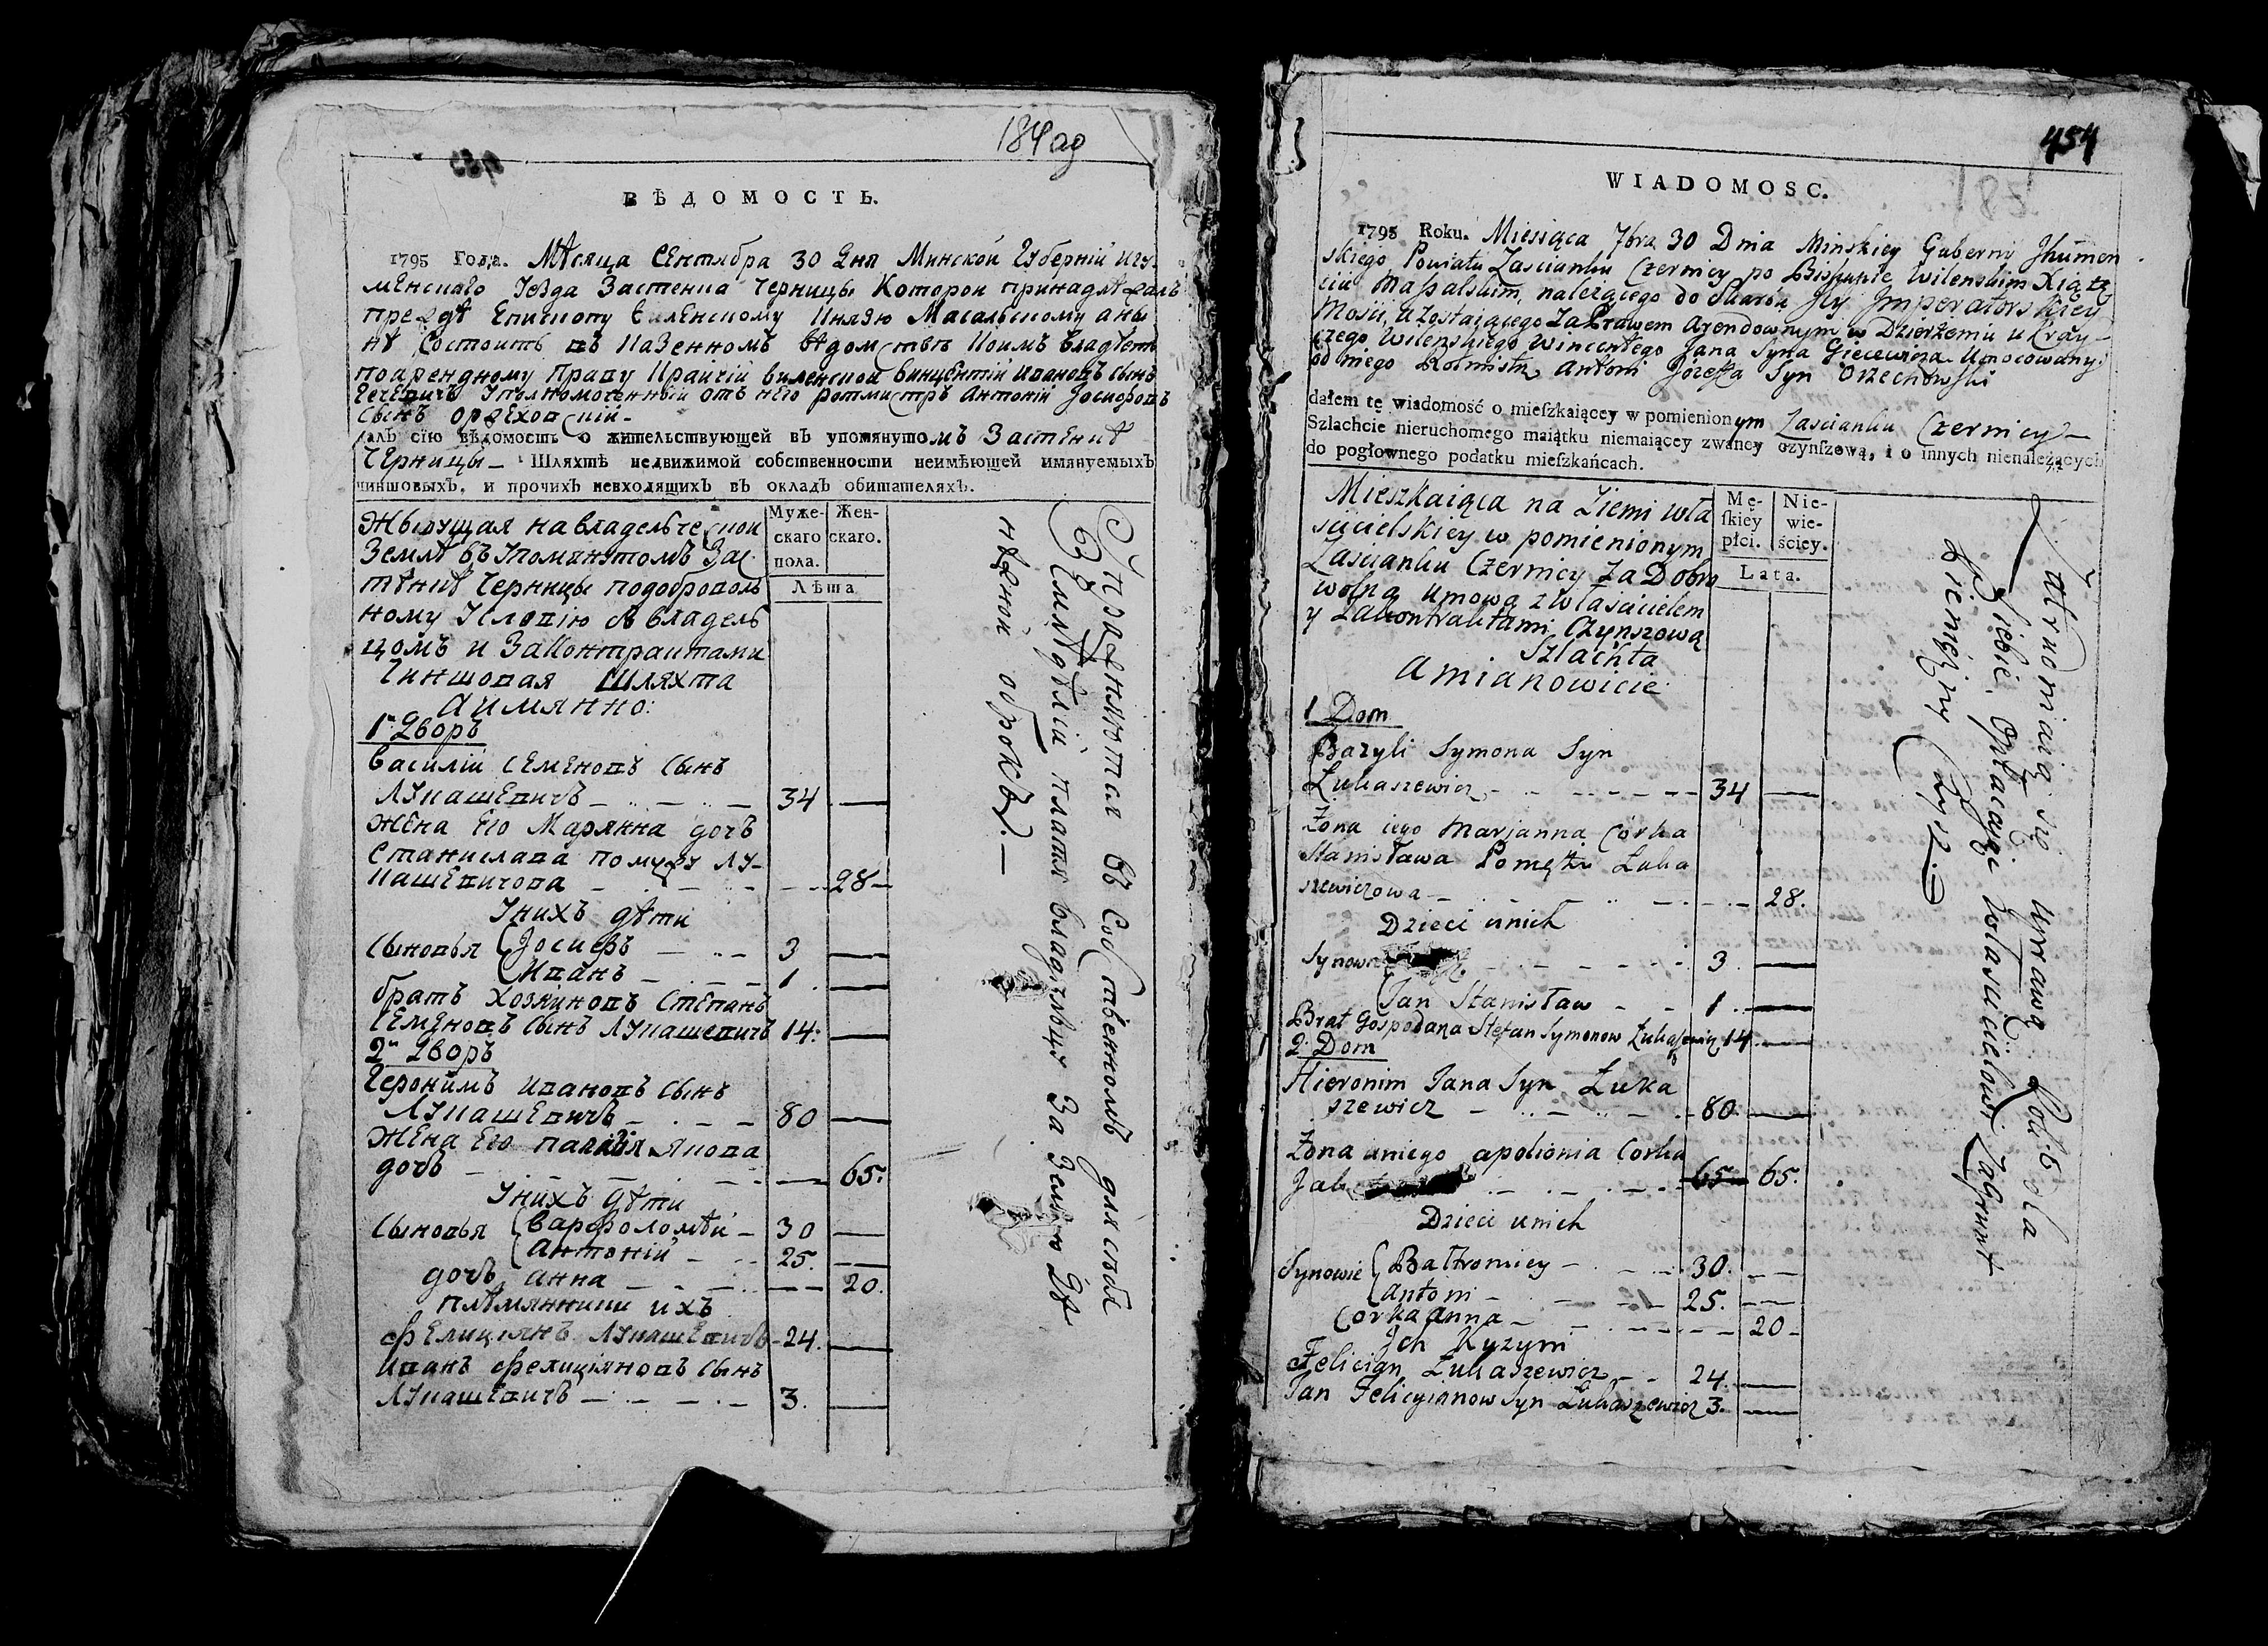 184 ад
ВѢДОМОСТЬ.
1795 Года. Мѣсяца Сентября 30 Дня Минской Губерній Игу-
менскаго Уезда Застенка Черницы Которой принадлѣжалъ
прежде Епископу Виленскому Князю Масальскому а ны
нѣ Состоитъ въ Казенномъ вѣдомствѣ Коимъ владѣетъ
по арендному Праву Крайчій виленской Винцентій Ивановъ сынъ
Гечевичъ Уполномоченный отъ него ротмистръ Антоній Іосифовъ
Сынъ Оржеховскій-
далъ сїю вѣдомость о жительствующей въ упомянутомъ Застѣнкѣ
Черницы- Шляхтѣ недвижимой собственности неимѣющей имянуемыхъ
чиншовыхъ, и прочихъ невходящихъ въ окладъ обитателяхъ.
Муже-
скаго
пола.
Жен-
скаго.
Лѣта
Живущая на владельческой
Землѣ въ Упомянутомъ Зас
тѣнкѣ Черницы по доброволь
ному Условію съ владель
цомъ и Законтрактами
Чиншовая Шляхта
Аимянно:
1й Дворъ
Василій Семеновъ Сынъ
Лукашевичъ - 34 —
Жена Его Марянна дочъ
Станислава Помужу Лу-
кашевичова - 28 -
Унихъ дѣти
Сыновья Іосифъ - 3 —
Иванъ - 1 —
братъ Хозяиновъ Степанъ
Семеновъ Сынъ Лукашевичъ 14: —
2й Дворъ
Геронимъ Ивановъ Сынъ
Лукашевичъ - 80 —
Жена Его Якова
дочь - 65.
Унихъ Дѣти
Сыновья Варфоломѣй - 30 —
Антоній - 25. —
дочь Анна - 20.
племянники ихъ
Фелиціянъ Лукашевичъ - 24. —
Иванъ Фелиціяновъ Сынъ
Лукашевичъ - 3. —
Упражняются въ Собственномъ для себя
Земледѣліи, платя владѣльцу За Землю Де
нѣжной оброкъ. —
454
185
WIADOMOSC.
1795 Roku. Miesiąca 7bra 30 Dnia Minskiey Guberny Jhumen
skiego Powiatu Zascianku Czernicy po Biskupie Wilenskim Xiążę
ciu Massalskim, należącego do Skarbu Jey Jmperatorskiey
Mosci, a zostaiącego za Prawem Arendownym w Dzierżeniu u Kray-
czego Wilenskiego Wincentego Jana Syna Giecewicza Umocowany
od niego Rotmistrz Antoni Jozefa Syn Orzechowski
dałem tę wiadomość o mieſzkaiącey w pomienionym Zascianku Czernicy -
Szlachcie nieruchomego maiątku niemaiącey zwaney czynſzową, i o innych nienależących
do pogłownego podatku mieſzkańcach.
Mę-
ſkiey
płci.
Nie-
wie-
ściey.
Lata.
Mieszkaiąca na Ziemi wła
scicielskiey w pomienionym
Zascianku Czernicy za Dobro
wolną Umową z właścicielem
y Zakontraktami Czynszową
Szlachta
Amianowicie
1 Dom
Bazyli Symona Syn
Łukaszewicz - 34 —
Żona iego Marjanna Corka
Stanisława Pomężu Łuka
szewiczowa - 28.
Dzieci unich
Synowie - 3 —
Jan Stanisław - 1 —
Brat Gospodarza Stefan Symonow Łukaszewicz 14 —
2 Dom
Hieronim Jana Syn Łuka
szewicz - 80 —
Żona uniego Apolionia Corka
Jak - 65 65.
Dzieci unich
Synowie Bałtromiey - 30. —
Antoni - 25. —
Corka Anna - 20 -
Jch Kuzyni
Felician Łukaszewicz - 24. —
Jan Felicyianow Syn Łukaszewicz 3. —
Zatrudniaią się Uprawą Roli dla
Siebie, Opłacaiąc właścicielowi Zagrunt
Pieniężny Czynsz